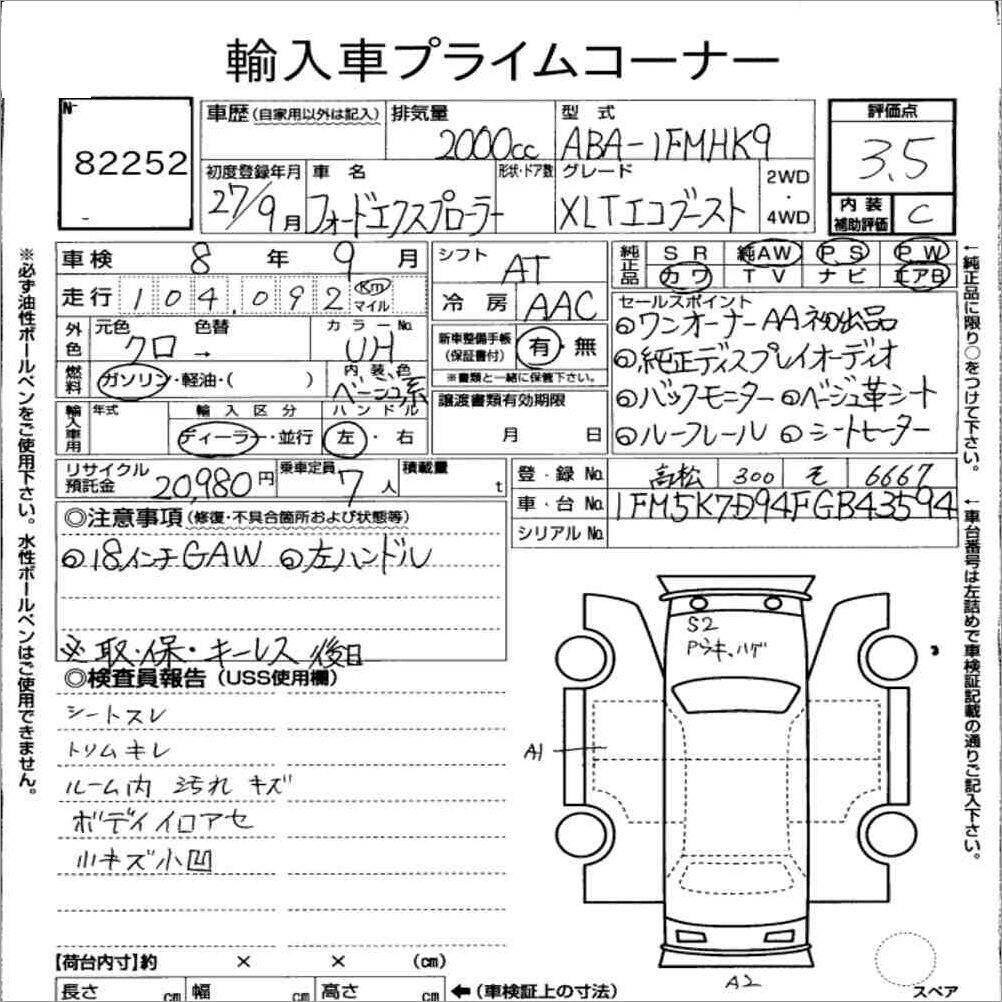 輸入車プライムコーナー
No
82252
車歴 (自家用以外は記入)
排気量
2000cc
型 式
ABA-1FMHK9
評価点
3.5
初度登録年月
27/9月
車 名
フォードエクスプローラー
形状・ドア数
グレード
XLTエコブースト
2WD
・
4WD
内 装
補助評価
C
車検 8 年 9 月
走行 104,092 Km マイル
シフト
AT
冷 房 AAC
純正品
SR 純AW PS PW
カワ TV ナビ エアB
外色
元色
クロ
色替
→
カラーNo.
UH
燃料
ガソリン・軽油・( )
内 装 色
ベージュ系
新車整備手帳
(保証書付)
有・無
※書類と一緒に保管下さい。
セールスポイント
◎ワンオーナーAA初出品
◎純正ディスプレイオーディオ
◎バックモニター ◎ベージュ革シート
◎ルーフレール ◎シートヒーター
輸入車用
年式
輸 入 区 分
ディーラー・並行
ハ ン ド ル
左・右
譲渡書類有効期限
月 日
リサイクル
預託金
20,980円
乗車定員
7人
積載量
t
登・録 No. 高松 300 そ 6667
車・台 No. 1FM5K7D94FGB43594
シリアル No.
◎注意事項 (修復・不具合箇所および状態等)
◎18インチGAW ◎左ハンドル
※取・保・キーレス 後日
◎検査員報告 (USS使用欄)
シートスレ
トリムキレ
ルーム内 汚れ キズ
ボディイロアセ
小キズ小凹
S2
Pウキ、ハゲ
A1
A2
スペア
【荷台内寸】約 × × (cm)
長さ cm 幅 cm 高さ cm ←(車検証上の寸法)
※必ず油性ボールペンをご使用下さい。水性ボールペンはご使用できません。
←純正品に限り○をつけて下さい。
←車台番号は左詰めで車検証記載の通りご記入下さい。